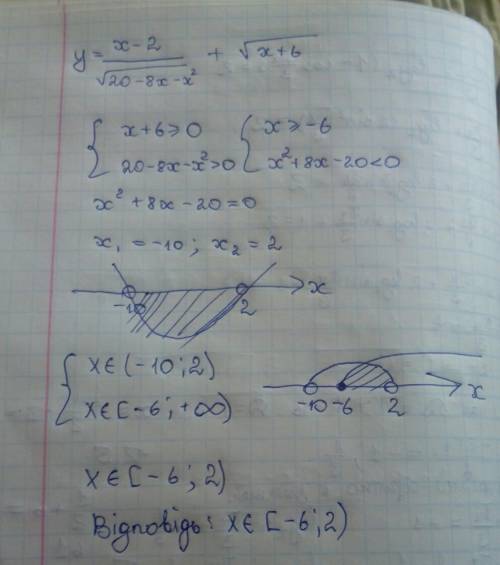 y = x-2/√20-8x-x² + √x+6
{ x+6≥0 { x≥-6
20-8x-x²>0 x²+8x-20<0
x²+8x-20=0
x₁ = -10 ; x₂ = 2
-10 2 x
{ x∈(-10;2)
x∈[-6;+∞)
-10 -6 2 x
x∈[-6;2)
Відповідь: x∈[-6;2)